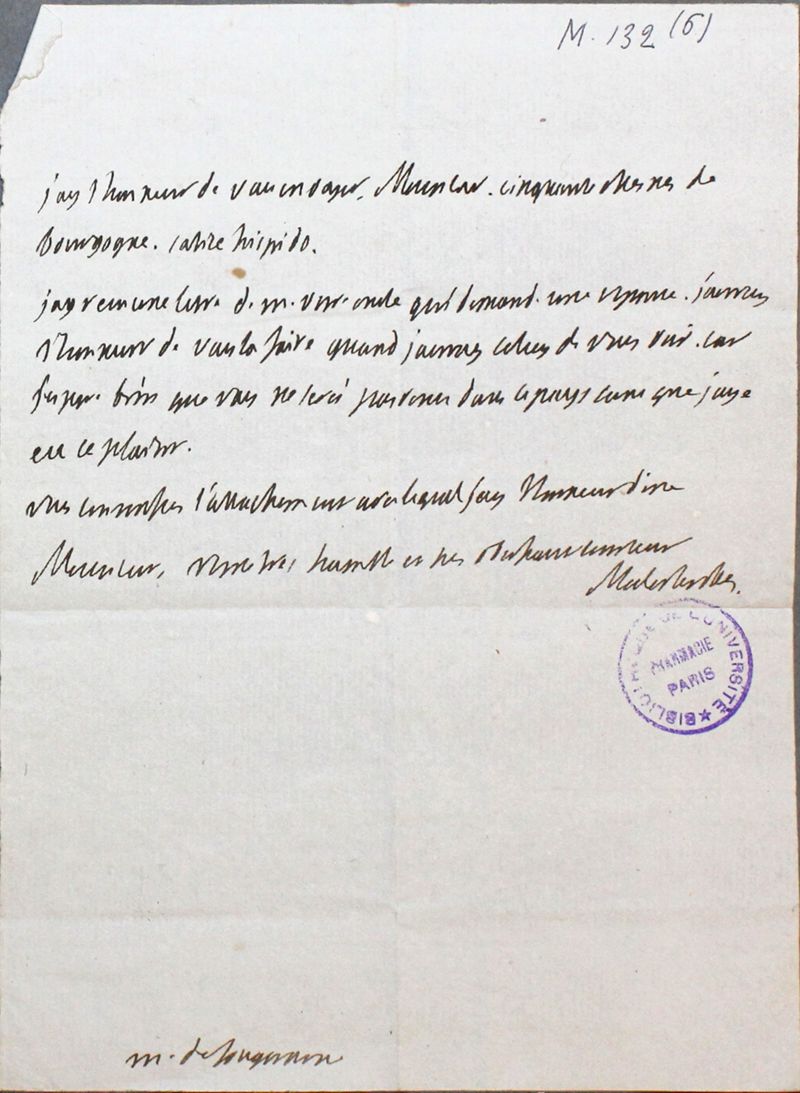 M. 132 (6)
j'ay l'honneur de vous envoyer, Monsieur. cinquante chesnes de
bourgogne. calice hispido.
jay receu une lettre de m. qui demande une reponse. j'auray
l'honneur de vous la faire quand j'auray celuy de vous voir. car
j'espere bien que vous ne serés pas venu dans ce pays sans que j'aye
eu ce plaisir.
vous connoissés l'attachement avec lequel j'ay l'honneur d'etre
Monsieur, votre tres humble et tres obeissant serviteur
Malesherbes.
BIBLIOTHEQUE DE L'UNIVERSITÉ
PHARMACIE
PARIS
m. de fougeroux